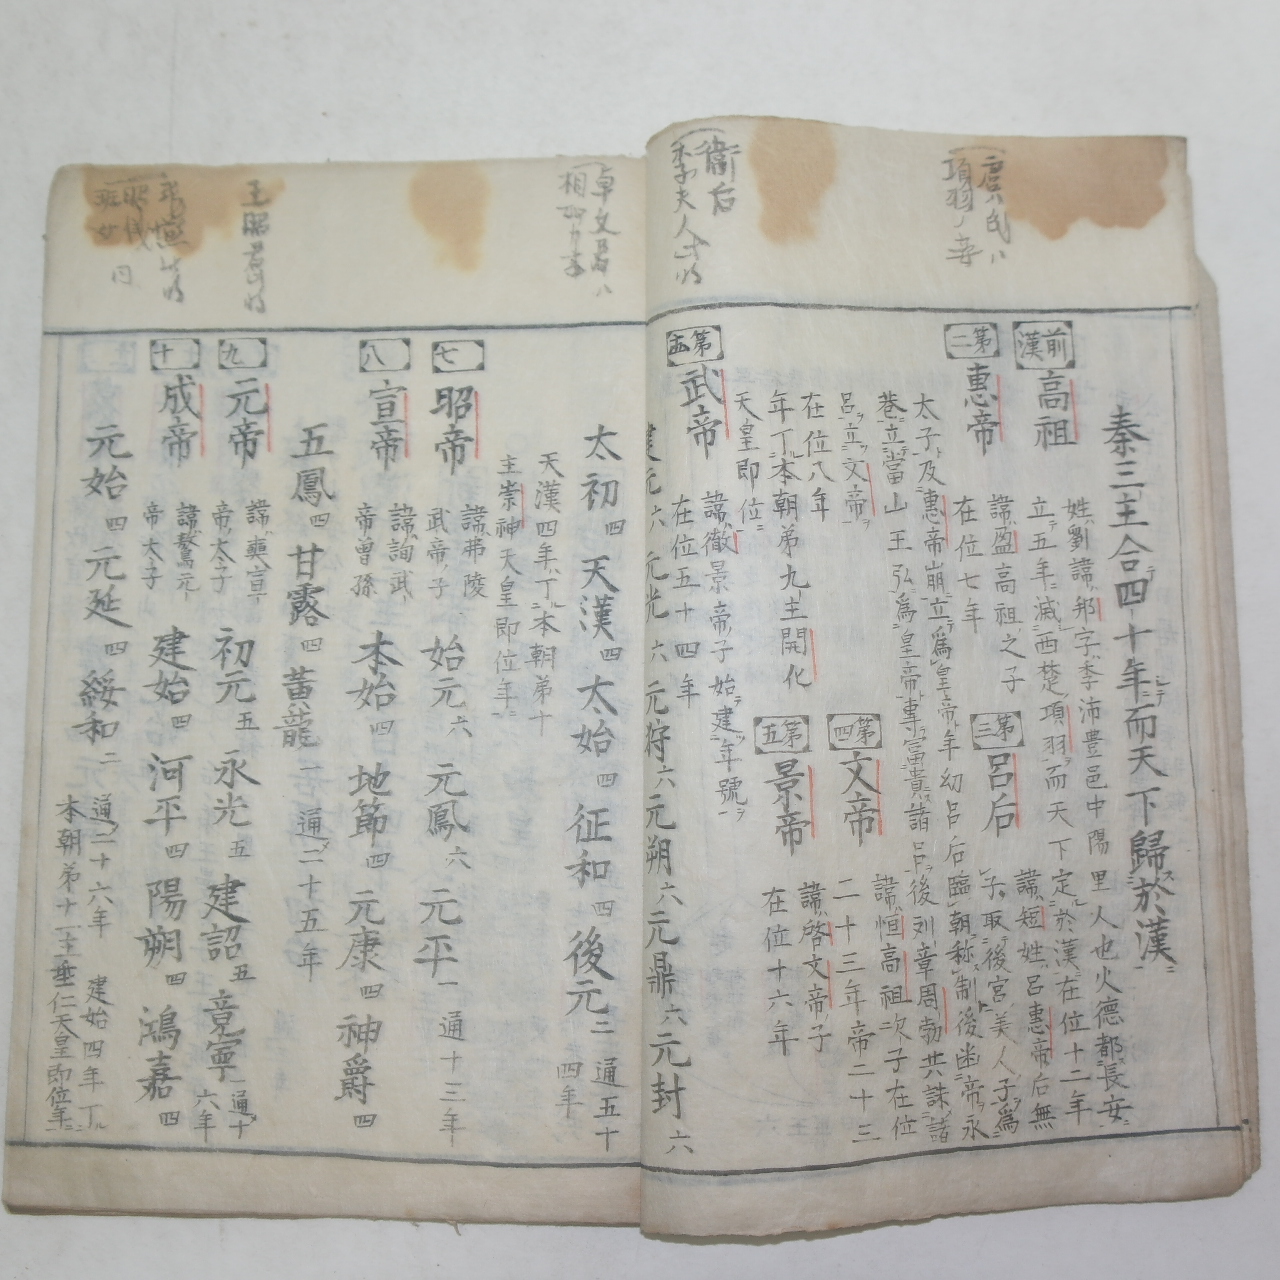 秦三主合四十年而天下歸於漢
前漢
高祖
姓劉諱邦字季沛豊邑中陽里人也火德都長安
立五年滅西楚項羽而天下定於漢在位十二年
第二
惠帝
諱盈高祖之子
在位七年
三
呂后
諱短姓呂惠帝后無
子取後宮美人子爲
太子及惠帝崩立爲皇帝年幼呂后臨朝称制後幽帝永
巷立當山王弘爲皇帝専富貴諸呂後列章周勃共誅諸
呂立文帝
在位八年
第四
文帝
諱恒高祖次子在位
二十三年帝二十三
年丁本朝弟九主開化
天皇即位
第五
景帝
諱啓文帝子
在位十六年
武帝
諱徹景帝子始建年號
在位五十四年
建元六 元光六 元狩六 元朔六 元鼎六 元封六
太初四 天漢四 太始四 征和四 後元二 通五十
四年
天漢四年丁本朝弟十
主崇神天皇即位年
七
昭帝
諱弗陵
武帝子
始元六 元鳳六 元平一 通十三年
八
宣帝
諱詢武
帝曽孫
本始四 地節四 元康四 神爵四
五鳳四 甘露四 黃龍一 通二十五年
九
元帝
諱奭宣
帝太子
初元五 永光五 建詔五 竟寧一 通十
六年
十
成帝
諱驁元
帝太子
建始四 河平四 陽朔四 鴻嘉四
元始四 元延四 綏和二
通二十六年 建始四年丁
本朝弟十一主垂仁天皇即位年
虞氏ハ
項羽ノ妻
衞后
李夫人
卓文君ハ
相如
王昭君
班女